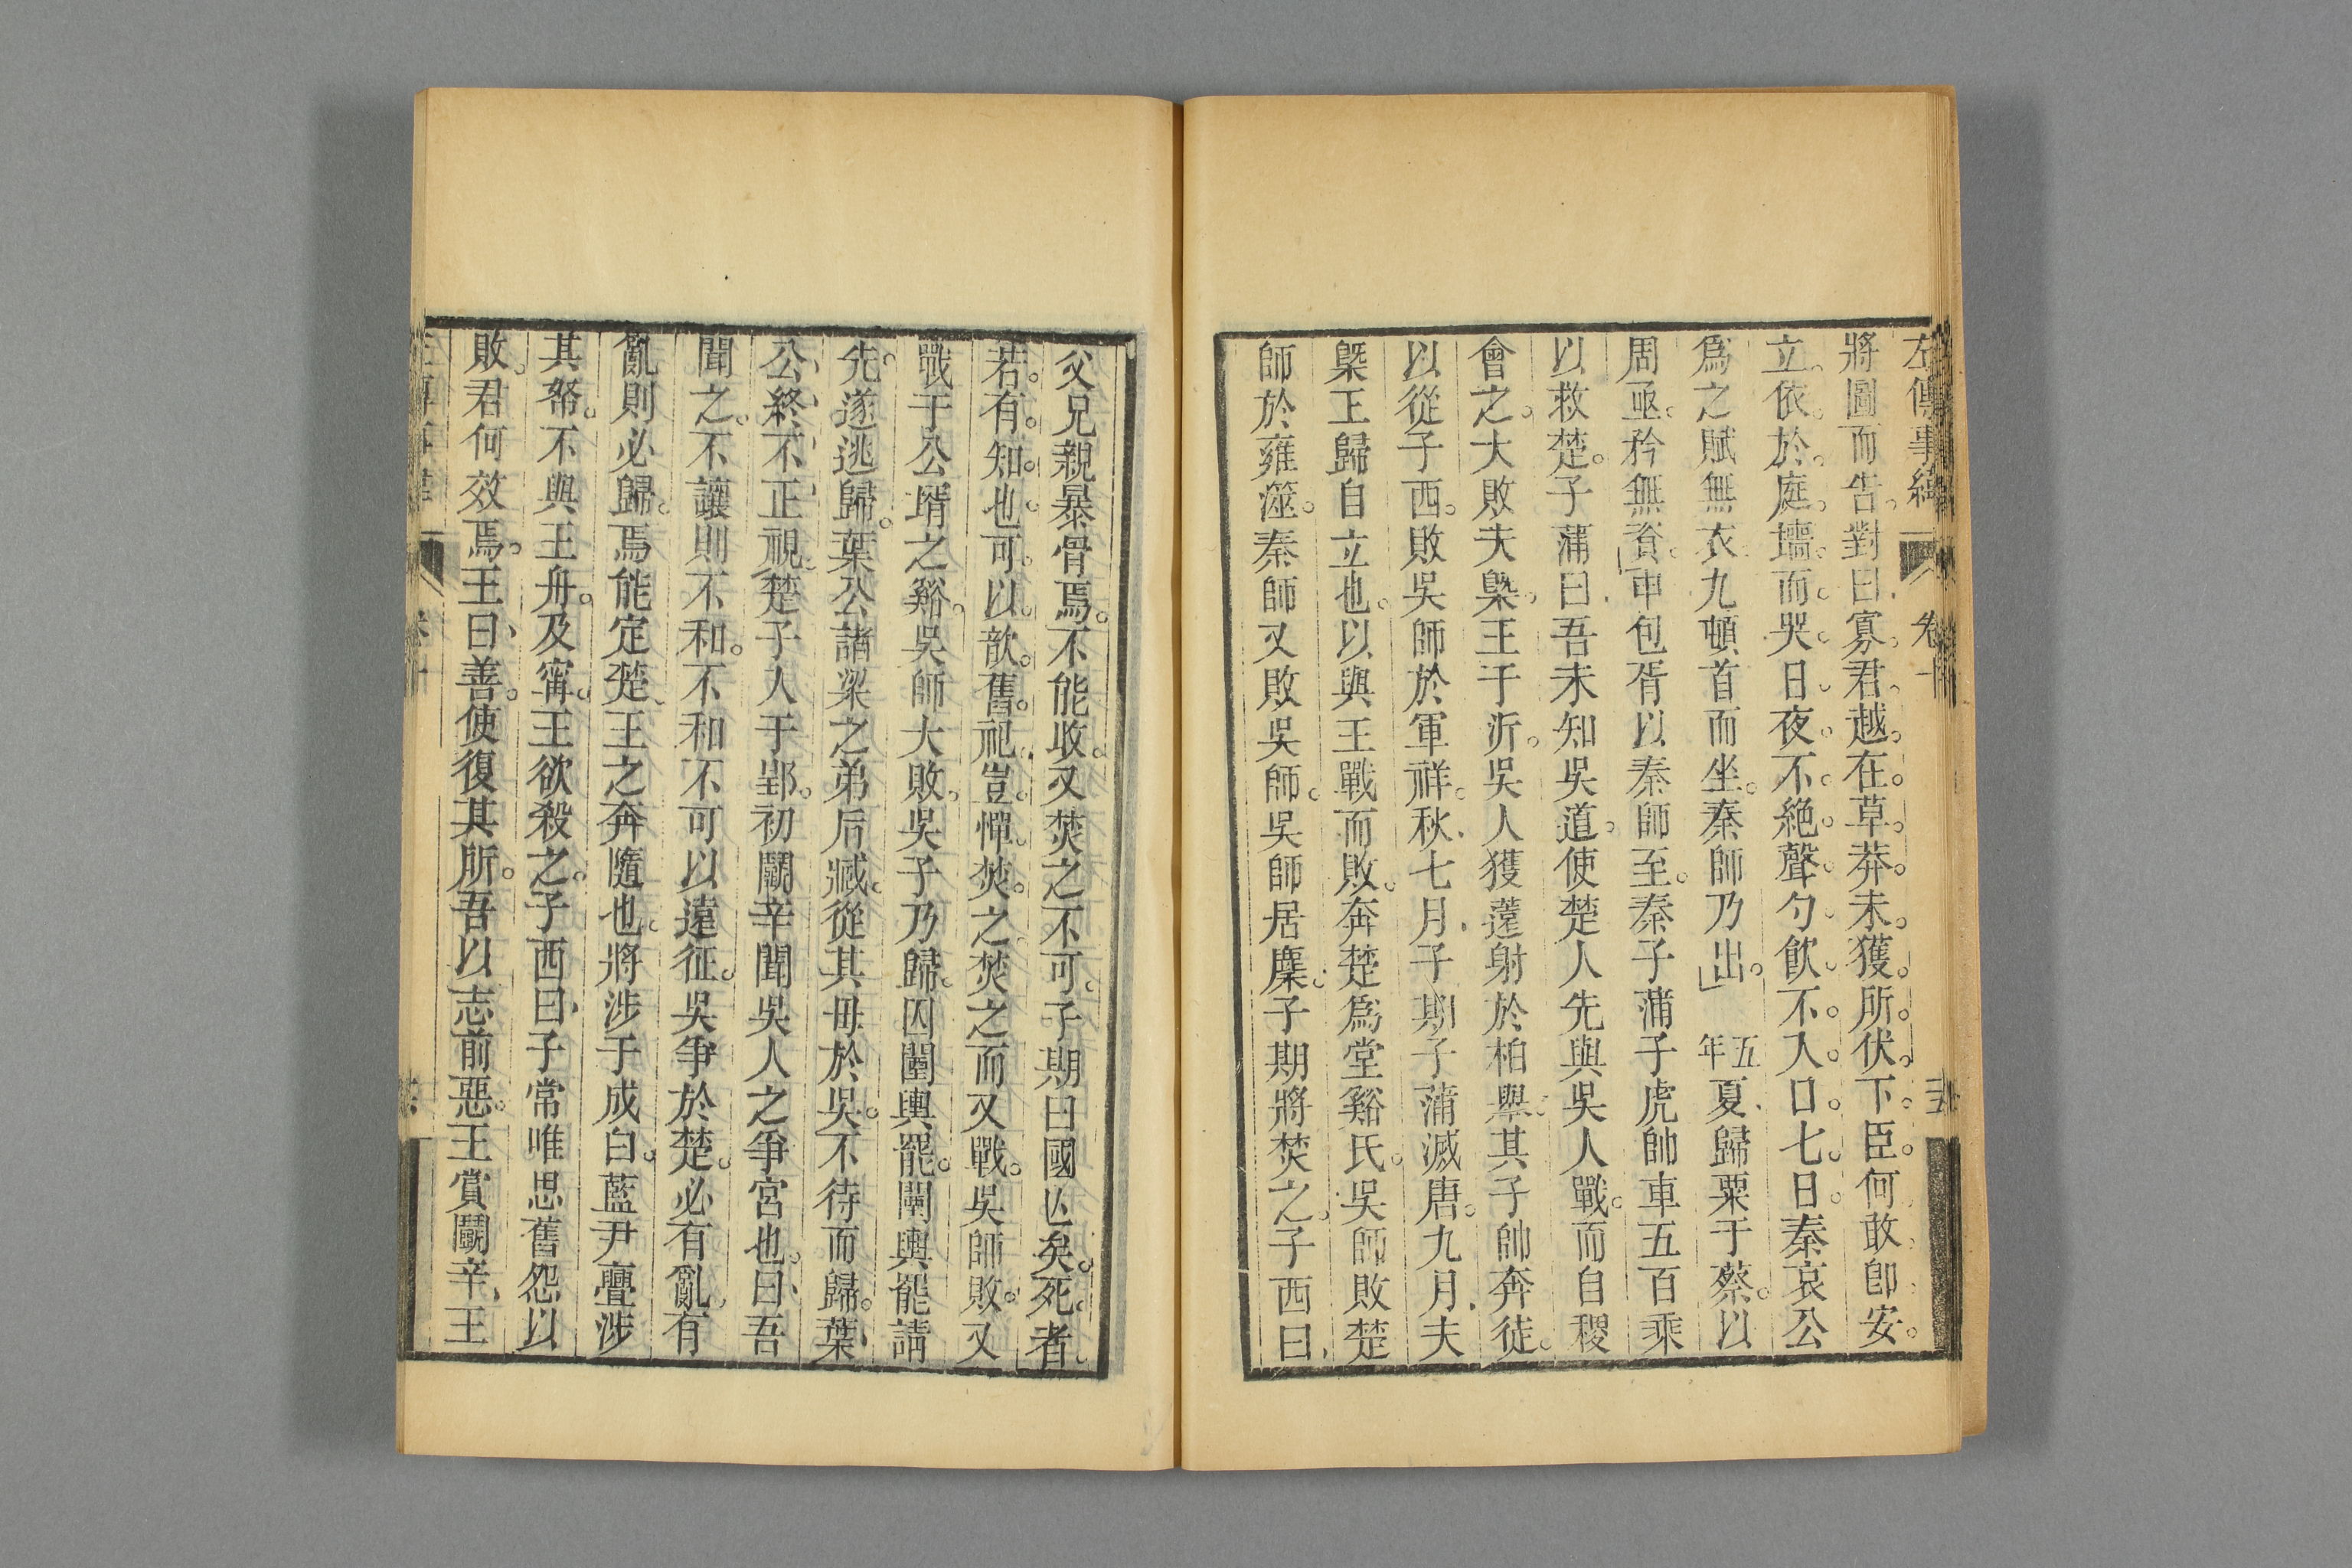 左傳事緯 卷十
將圖而告對曰寡君越在草莽未獲所伏下臣何敢卽安
立依於庭墻而哭日夜不絶聲勺飮不入口七日秦哀公
爲之賦無衣九頓首而坐秦師乃出 五年夏歸粟于蔡以
周亟矜無資申包胥以秦師至秦子蒲子虎帥車五百乘
以救楚子蒲曰吾未知吳道使楚人先與吳人戰而自稷
會之大敗夫槩王于沂吳人獲薳射於柏舉其子帥奔徒
以從子西敗吳師於軍祥秋七月子期子蒲滅唐九月夫
槩王歸自立也以與王戰而敗奔楚爲堂谿氏吳師敗楚
師於雍澨秦師又敗吳師吳師居麇子期將焚之子西曰
父兄親暴骨焉不能收又焚之不可子期曰國亾矣死者
若有知也可以歆舊祀豈憚焚之焚之而又戰吳師敗又
戰于公壻之谿吳師大敗吳子乃歸囚闉輿罷闉輿罷請
先遂逃歸葉公諸梁之弟后臧從其母於吳不待而歸葉
公終不正視楚子入于郢初鬭辛聞吳人之爭宮也曰吾
聞之不讓則不和不和不可以遠征吳爭於楚必有亂有
亂則必歸焉能定楚王之奔隨也將涉于成臼藍尹亹涉
其帑不與王舟及甯王欲殺之子西曰子常唯思舊怨以
敗君何效焉王曰善使復其所吾以志前惡王賞鬭辛王